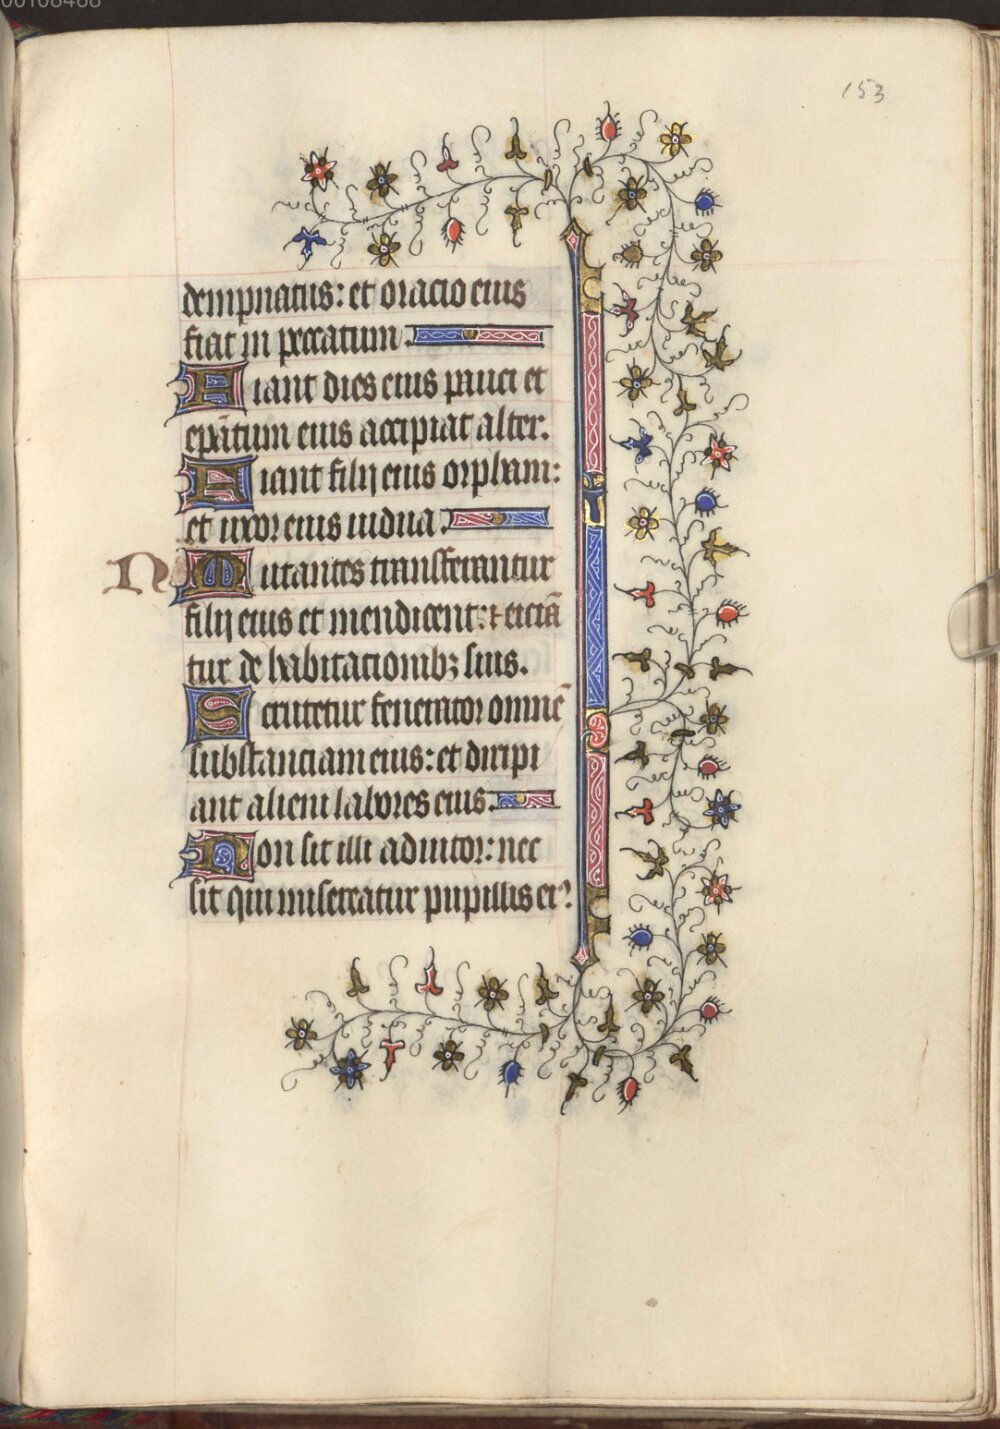 00108468
153
dempnatus: et oracio eius
fiat in peccatum.
Fiant dies eius pauci et
ep̄atum eius accipiat alter.
Fiant filij eius orphani:
et uxor eius uidua.
N Mutantes transferantur
filij eius et mendicent: ⁊ eiciā
tur de habitacionibꝫ suis.
Scrutetur fenerator omnē
substanciam eius: et diripi
ant alieni labores eius.
Non sit illi adiutor: nec
sit qui misereatur pupillis ei᷒